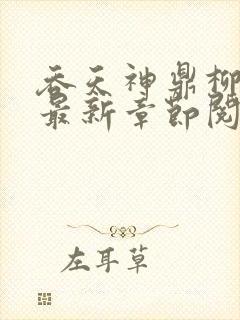 吞天神鼎柳
最新章节阅
左耳草